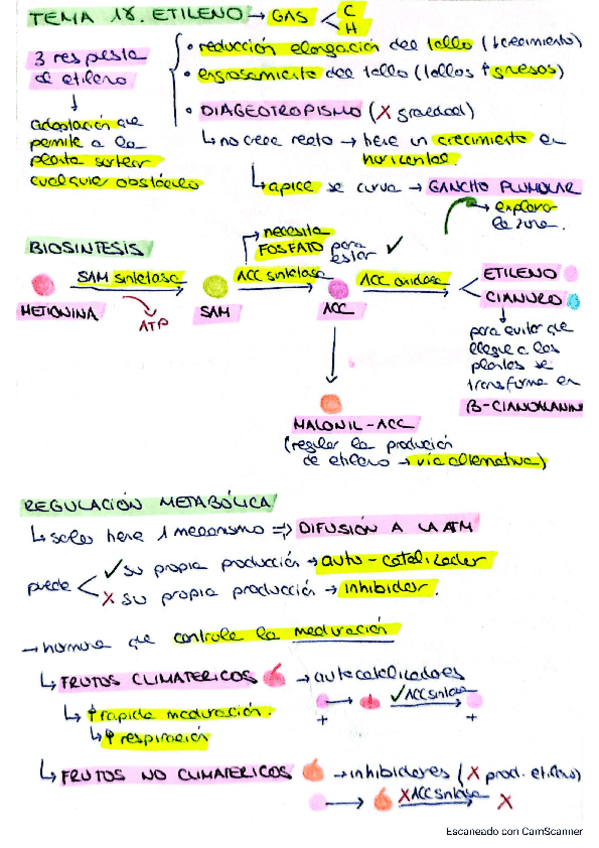 TEMA 18. ETILENO → GAS < C
H
3 respuesta al etileno
↓
adaptación que permite a la planta sortear cualquier obstáculo
• reducción elongación del tallo (↓ crecimiento)
• engrosamiento del tallo (tallos ↑ gruesos)
• DIAGEOTROPISMO (X gravedad)
↳ no crece recto → tiene un crecimiento en horizontal.
↳ apice se curva → GANCHO PLUMULAR
→ explora la zona.
BIOSINTESIS
→ necesita FOSFATO para estar ✓
METIONINA
SAM sintetasa
ATP
SAM
ACC sintetasa
ACC
ACC oxidasa
ETILENO
CIANURO
para evitar que llegue a las plantas se transforma en
β-CIANOALANINA
MALONIL-ACC
(regular la produción
de etileno → vía alternativa)
REGULACIÓN METABÓLICA
↳ solo tiene 1 mecanismo => DIFUSIÓN A LA ATM
puede < ✓ su propia producción → auto-catalizador
X su propia producción → inhibidor.
→ hormona que controla la maduración
↳ FRUTOS CLIMATERICOS → autocatalizadores
↳ ↑ rapida maduración.
↳ ↑ respiración
+ ✓ ACC sintasa +
↳ FRUTOS NO CLIMATERICOS → inhibidores (X prod. etileno)
X ACC sintasa X
Escaneado con CamScanner